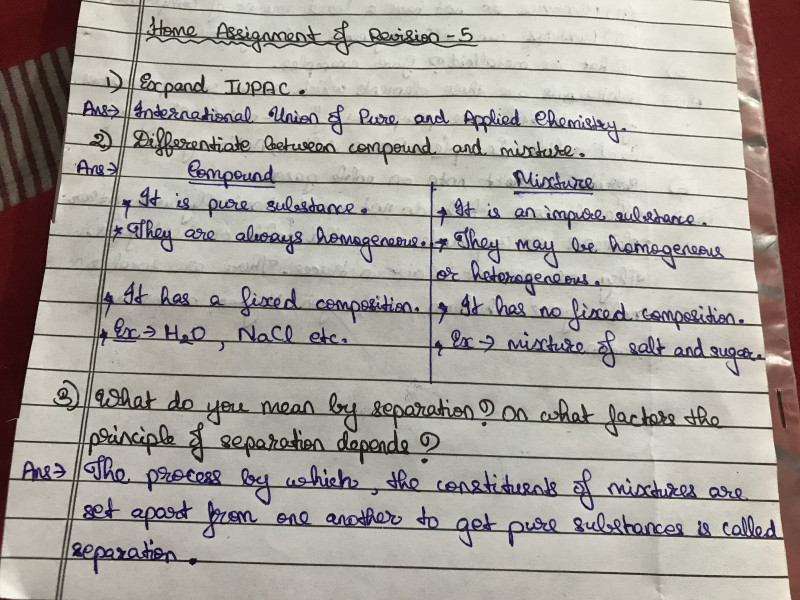 Home Assignment of Revision - 5
1) Expand IUPAC.
Ans→ International Union of Pure and Applied Chemistry.
2) Differentiate between compound and mixture.
Ans→
Compound
* It is pure substance.
* They are always homogeneous.
* It has a fixed composition.
* Ex → H2O, NaCl etc.
Mixture
* It is an impure substance.
* They may be homogeneous
or heterogeneous.
* It has no fixed composition.
* Ex → mixture of salt and sugar.
3) What do you mean by separation? On what factors the
principle of separation depends?
Ans→ The process by which, the constituents of mixtures are
set apart from one another to get pure substances is called
separation.